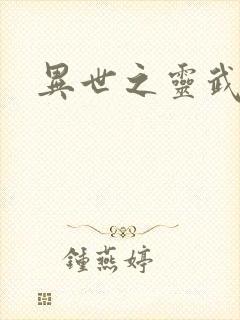 異世之靈武
鍾燕婷